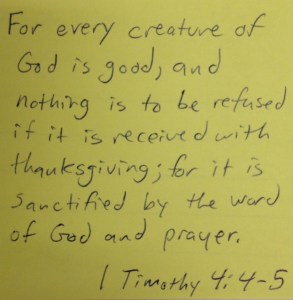 For every creature of
God is good, and
nothing is to be refused
if it is received with
thanksgiving; for it is
sanctified by the word
of God and prayer.
1 Timothy 4:4-5